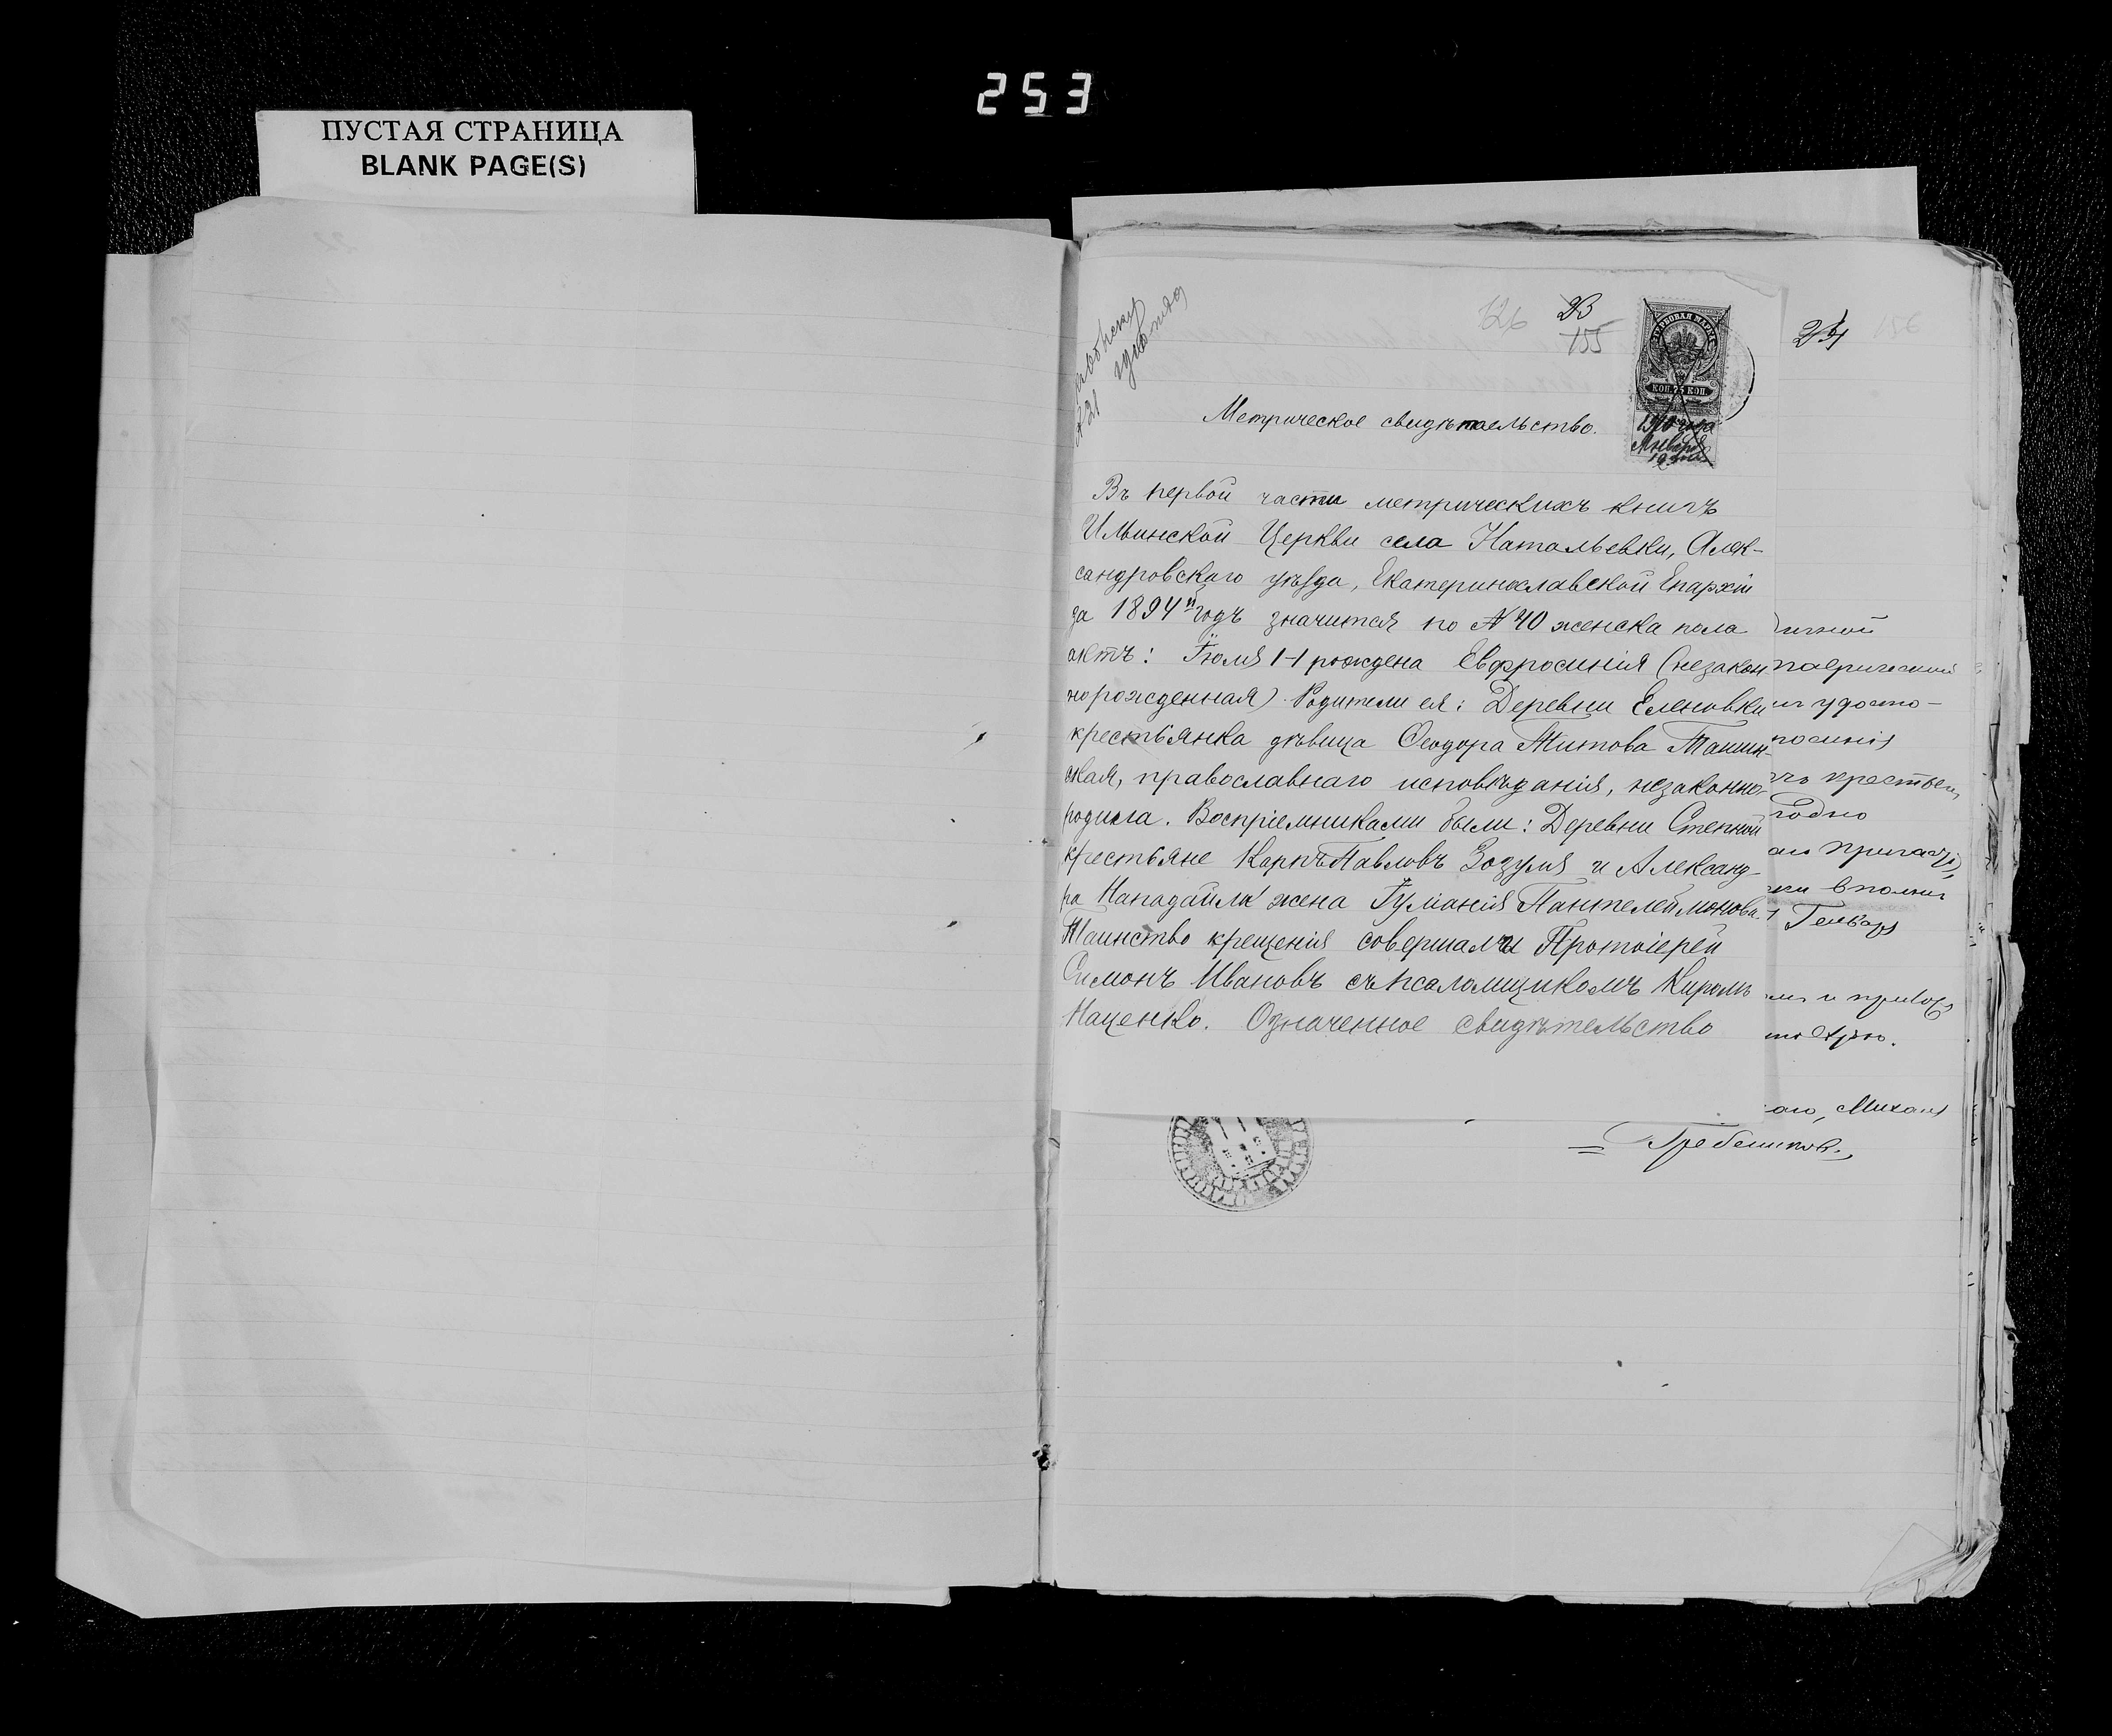 253
ПУСТАЯ СТРАНИЦА
BLANK PAGE(S)
126 23 155
24 156
ГЕРБОВАЯ МАРКА
КОП. 75 КОП.
1910 года
Января
Метрическое свидѣтельство.
Въ первой части метрическихъ книгъ
Ильинской Церкви села Натальевки, Алек-
сандровскаго уѣзда, Екатеринославской Епархіи
за 1894й годъ значится по № 40 женска пола
актъ: Іюля 1-1 рождена Евфросинія (незакон-
норожденная). Родители ея: Деревни Еленовки
крестьянка дѣвица Ѳеодора Титова Ташин-
ская, православнаго исповѣданія, незаконно-
родила. Воспріемниками были: Деревни Степной
крестьяне Карпъ Павловъ Зозуля и Александ-
ра Нападайла жена Іуліанія Пантелеймонова.
Таинство крещенія совершали Протоіерей
Симонъ Ивановъ съ псаломщикомъ Киромъ
Наценко. Означенное свидѣтельство
удосто-
росинія
крестьян
вполнѣ
Генваря
Михаил
Гребеников